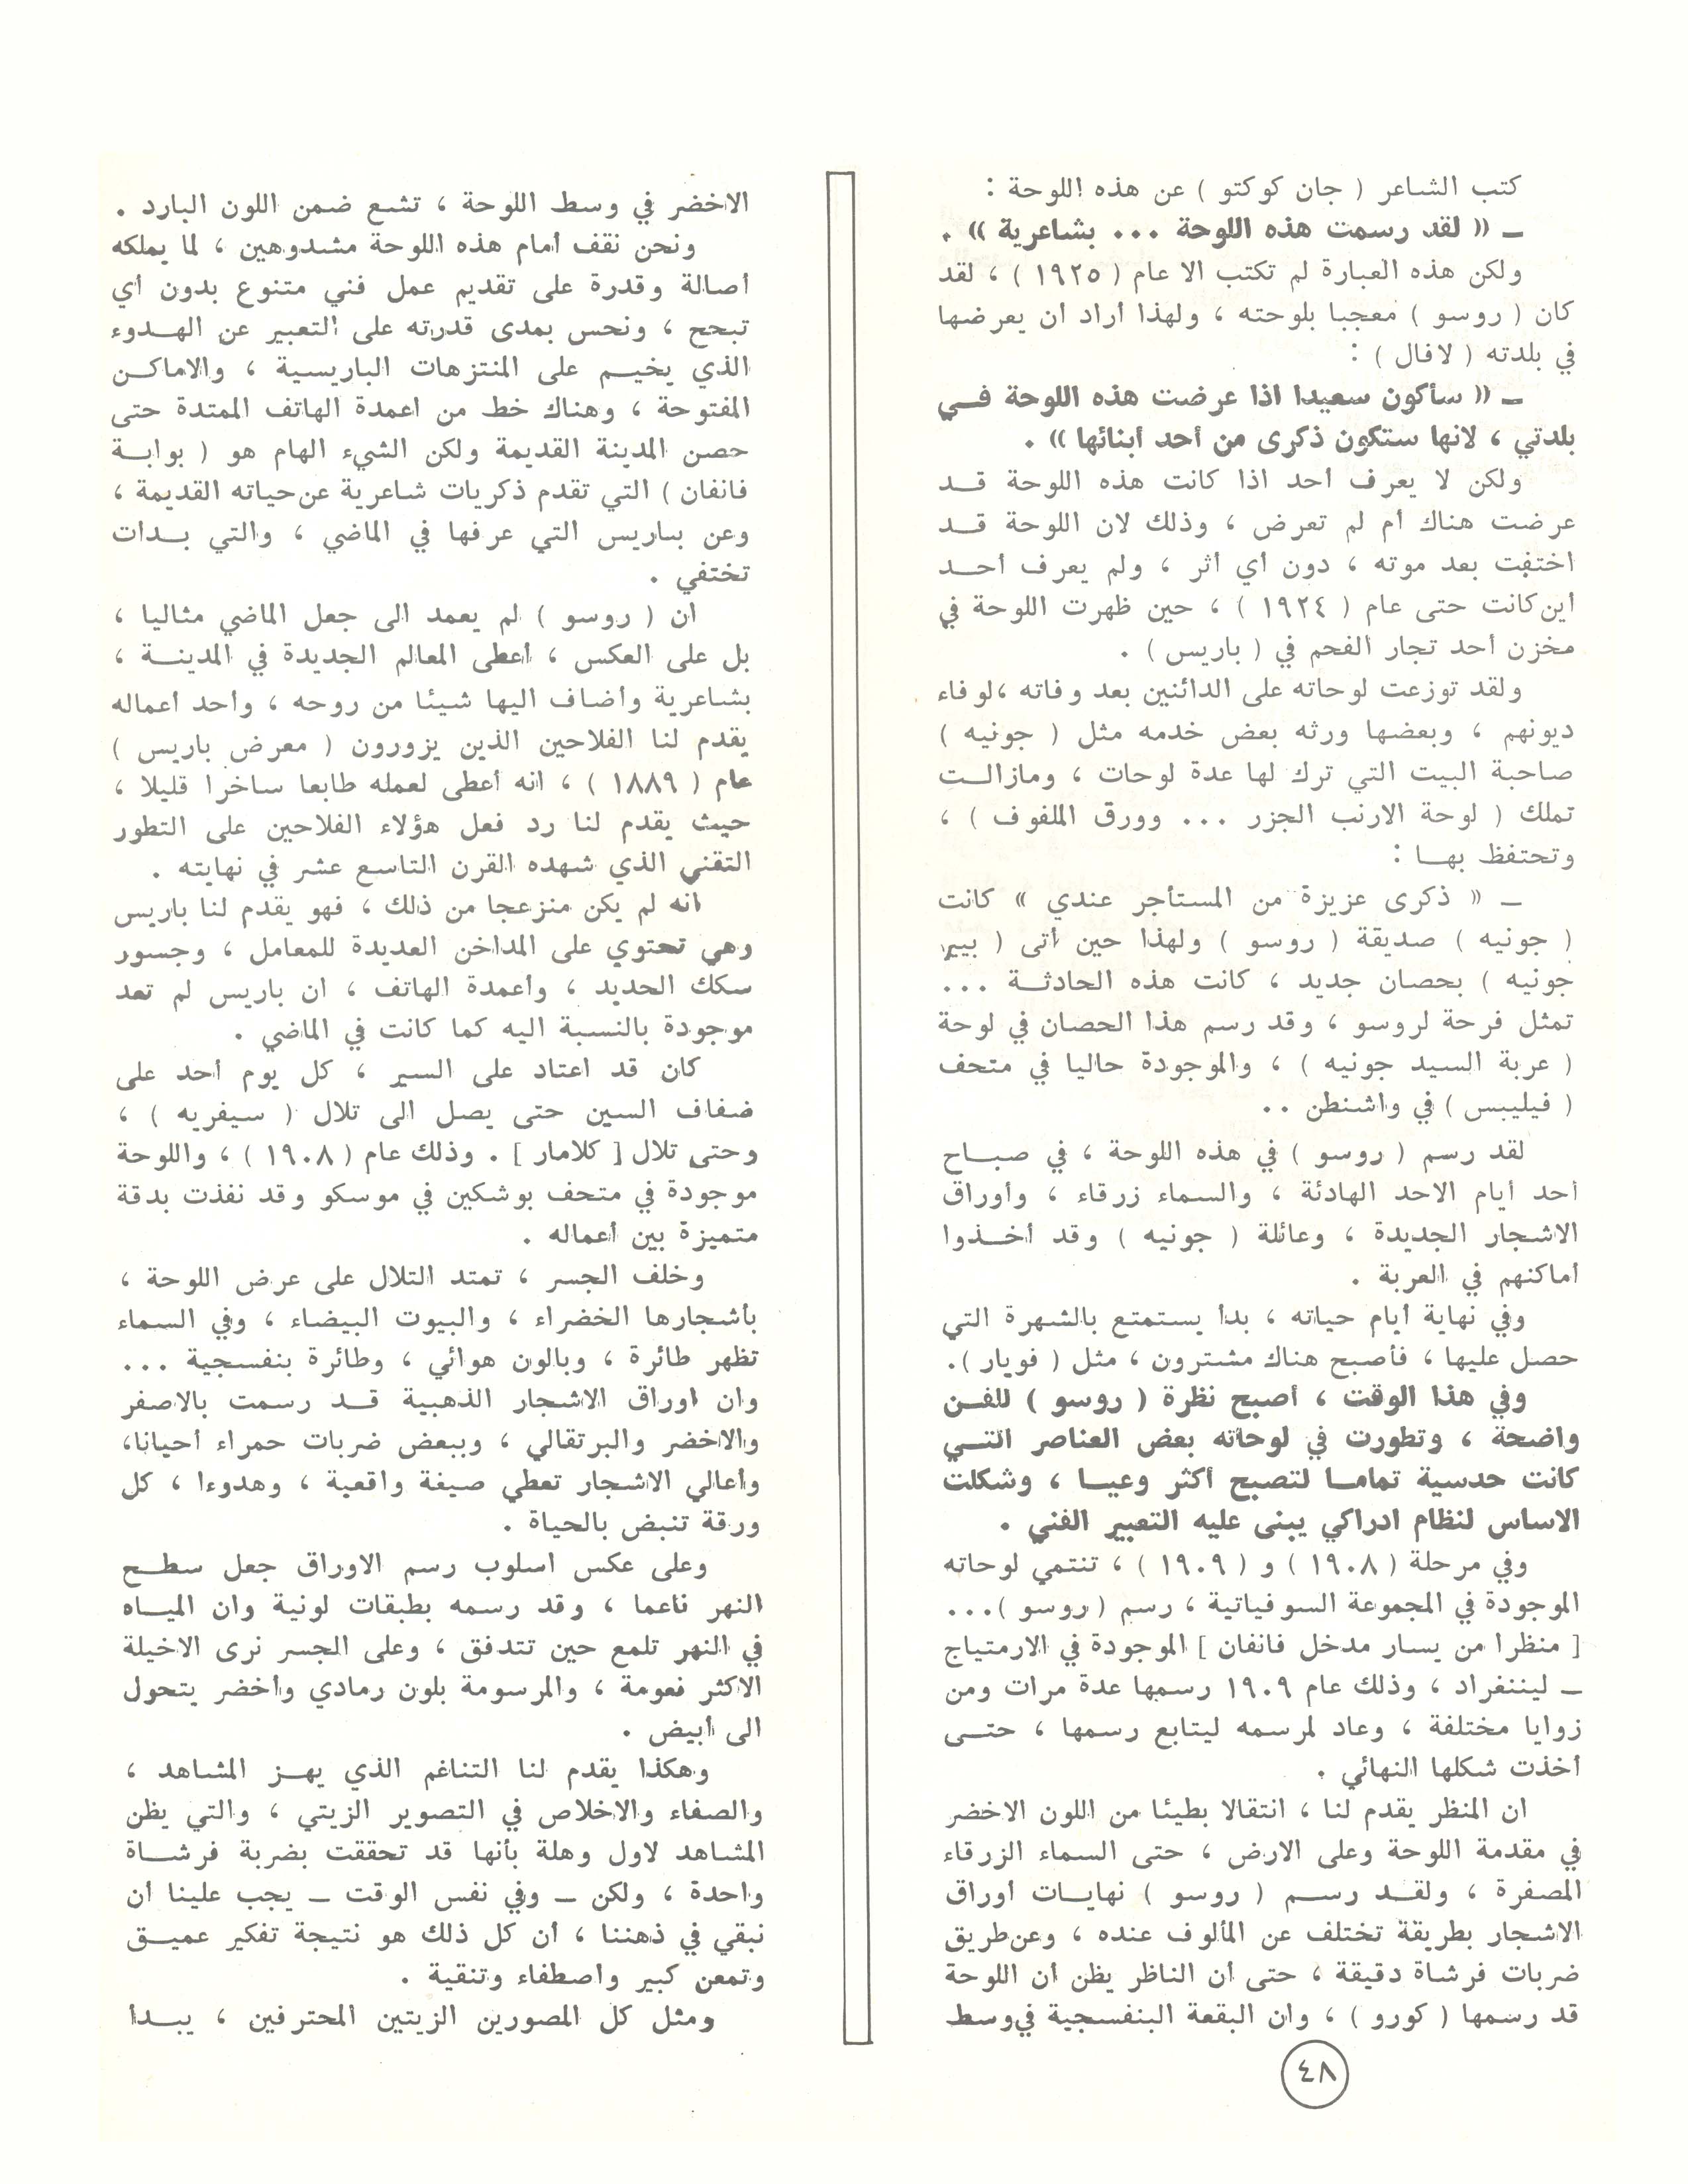 كتب الشاعر ( جان كوكتو ) عن هذه اللوحة :
ـ « لقد رسمت هذه اللوحة ... بشاعرية » .
ولكن هذه العبارة لم تكتب الا عام ( ١٩٢٥ ) ، لقد
كان ( روسو ) معجبا بلوحته ، ولهذا أراد ان يعرضها
في بلدته ( لافال ) :
ـ « سأكون سعيدا اذا عرضت هذه اللوحة فـي
بلدتي ، لانها ستكون ذكرى من أحد أبنائها » .
ولكن لا يعرف أحد اذا كانت هذه اللوحة قـد
عرضت هناك أم لم تعرض ، وذلك لان اللوحة قـد
اختفت بعد موته ، دون أي أثر ، ولم يعرف أحـد
أين كانت حتى عام ( ١٩٢٤ ) ، حين ظهرت اللوحة في
مخزن أحد تجار الفحم في ( باريس ) .
ولقد توزعت لوحاته على الدائنين بعد وفاته ،لوفاء
ديونهم ، وبعضها ورثه بعض خدمه مثل ( جونيه )
صاحبة البيت التي ترك لها عدة لوحات ، ومازالـت
تملك ( لوحة الارنب الجزر ... وورق الملفوف ) ،
وتحتفظ بهـا :
ـ « ذكرى عزيزة من المستأجر عندي » كانت
( جونيه ) صديقة ( روسو ) ولهذا حين أتى ( بيير
جونيه ) بحصان جديد ، كانت هذه الحادثـة ...
تمثل فرحة لروسو ، وقد رسم هذا الحصان في لوحة
( عربة السيد جونيه ) ، والموجودة حاليا في متحف
( فيليبس ) في واشنطن ..
لقد رسم ( روسو ) في هذه اللوحة ، في صبـاح
أحد أيام الاحد الهادئة ، والسماء زرقاء ، وأوراق
الاشجار الجديدة ، وعائلة ( جونيه ) وقد أخـذوا
أماكنهم في العربة .
وفي نهاية أيام حياته ، بدأ يستمتع بالشهرة التي
حصل عليها ، فأصبح هناك مشترون ، مثل ( فويار ).
وفي هذا الوقت ، أصبح نظرة ( روسو ) للفـن
واضحة ، وتطورت في لوحاته بعض العناصر التـي
كانت حدسية تمامـا لتصبح أكثر وعيـا ، وشكلت
الاساس لنظام ادراكي يبنى عليه التعبير الفني .
وفي مرحلة ( ١٩٠٨ ) و ( ١٩٠٩ ) ، تنتمي لوحاته
الموجودة في المجموعة السوفياتية ، رسم ( روسو )...
[ منظرا من يسار مدخل فانفان ] الموجودة في الارمتياج
ـ ليننفراد ، وذلك عام ١٩٠٩ رسمها عدة مرات ومن
زوايا مختلفة ، وعاد لمرسمه ليتابع رسمها ، حتـى
أخذت شكلها النهائي .
ان المنظر يقدم لنا ، انتقالا بطيئا من اللون الاخضر
في مقدمة اللوحة وعلى الارض ، حتى السماء الزرقاء
المصفرة ، ولقـد رسـم ( روسو ) نهايـات أوراق
الاشجار بطريقة تختلف عن المألوف عنده ، وعن طريق
ضربات فرشاة دقيقة ، حتى أن الناظر يظن أن اللوحة
قد رسمها ( كورو ) ، وان البقعة البنفسجية في وسط
٤٨
الاخضر في وسط اللوحة ، تشع ضمن اللون البارد .
ونحن نقف أمام هذه اللوحة مشدوهين ، لما يملكه
أصالة وقدرة على تقديم عمل فني متنوع بدون أي
تبجح ، ونحس بمدى قدرته على التعبير عن الهـدوء
الذي يخيـم على المنتزهات الباريسية ، والاماكـن
المفتوحة ، وهناك خط من اعمدة الهاتف الممتدة حتى
حصن المدينة القديمة ولكن الشيء الهام هو ( بوابـة
فانفان ) التي تقدم ذكريات شاعرية عن حياته القديمة ،
وعن باريس التي عرفها في الماضي ، والتي بـدات
تختفي .
ان ( روسو ) لم يعمد الى جعل الماضي مثاليا ،
بل على العكس ، أعطى المعالم الجديدة في المدينـة ،
بشاعرية وأضاف اليها شيئا من روحه ، وأحد أعماله
يقدم لنا الفلاحين الذين يزورون ( معرض باريس )
عام ( ١٨٨٩ ) ، انه أعطى لعمله طابعا ساخرا قليلا ،
حيث يقدم لنا رد فعل هؤلاء الفلاحين على التطور
التقني الذي شهده القرن التاسع عشر في نهايته .
انه لم يكن منزعجا من ذلك ، فهو يقدم لنا باريس
وهي تحتوي على المداخن العديدة للمعامل ، وجسور
سكك الحديد ، وأعمدة الهاتف ، ان باريس لم تعد
موجودة بالنسبة اليه كما كانت في الماضي .
كان قد اعتاد على السير ، كل يوم أحد على
ضفاف السين حتى يصل الى تلال ( سيفريه ) ،
وحتى تلال [ كلامار ] . وذلك عام ( ١٩٠٨ ) ، واللوحة
موجودة في متحف بوشكين في موسكو وقد نفذت بدقة
متميزة بين أعماله .
وخلف الجسر ، تمتد التلال على عرض اللوحة ،
بأشجارها الخضراء ، والبيوت البيضاء ، وفي السماء
تظهر طائرة ، وبالون هوائي ، وطائرة بنفسجية ...
وان اوراق الاشجار الذهبية قـد رسمت بالاصفر
والاخضر والبرتقالي ، وببعض ضربات حمراء أحيانا،
وأعالي الاشجار تعطي صيغة واقعية ، وهدوءا ، كل
ورقة تنبض بالحياة .
وعلى عكس اسلوب رسم الاوراق جعل سطـح
النهر ناعما ، وقد رسمه بطبقات لونية وان الميـاه
في النهر تلمع حين تتدفق ، وعلى الجسر نرى الاخيلة
الاكثر نعومة ، والمرسومة بلون رمادي وأخضر يتحول
الى أبيض .
وهكذا يقدم لنا التناغم الذي يهـز المشاهد ،
والصفاء والاخلاص في التصوير الزيتي ، والتي يظن
المشاهد لاول وهلة بأنها قد تحققت بضربة فرشـاة
واحدة ، ولكن ـ وفي نفس الوقت ـ يجب علينا أن
نبقي في ذهننا ، أن كل ذلك هو نتيجة تفكير عميـق
وتمعن كبير واصطفاء وتنقية .
ومثل كل المصورين الزيتين المحترفين ، يبـدا